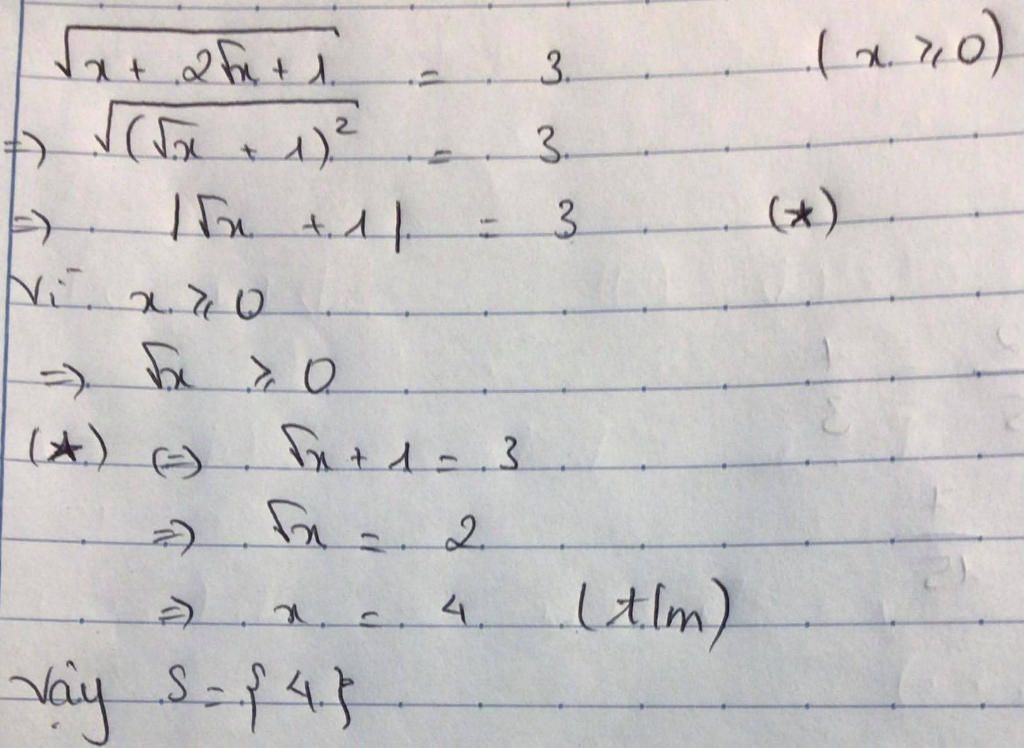 √(x + 2√x + 1) = 3 (x ≥ 0)
=> √((√x + 1)²) = 3
=> |√x + 1| = 3 (★)
Vì x ≥ 0
=> √x ≥ 0
(★) (=> √x + 1 = 3
=> √x = 2
=> x = 4 (t/m)
Vậy S = {4}